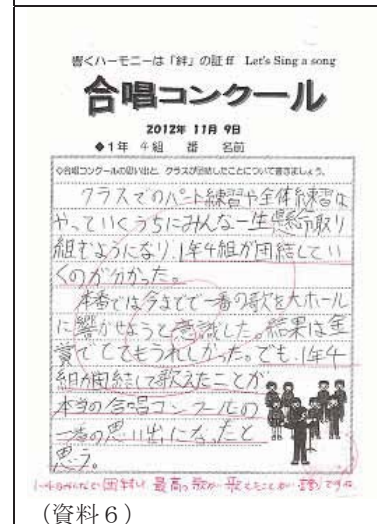 響くハーモニーは「絆」の証 ff Let's Sing a song
合唱コンクール
2012年 11月 9日
◆1年 4組 番 名前
◇合唱コンクールの思い出と、クラスが団結したことについて書きましょう。
クラスでのパート練習や全体練習は
やっていくうちにみんな一生懸命取り
組むようになり、1年4組が団結してい
くのが分かった。
本番では今までで一番の歌を大ホール
に響かせようと意識した。結果は金
賞でとてもうれしかった。でも、1年4
組が団結して歌えたことが
本当の合唱コンクールの
一番の思い出になったと
思う。
最高の歌が歌えたことが
(資料6)